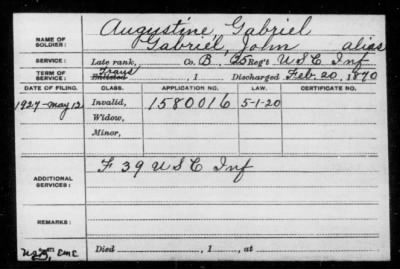 NAME OF SOLDIER: Augustine, Gabriel
Gabriel, John alias
SERVICE: Late rank, Co. B, 25 Reg't U S C Inf
TERM OF SERVICE: Enlisted Trans , 1 Discharged Feb. 20, 1870
DATE OF FILING. CLASS. APPLICATION NO. LAW. CERTIFICATE NO.
1927-May 12 Invalid, 1580016 5-1-20
Widow,
Minor,
ADDITIONAL SERVICES: F 39 U S C Inf
REMARKS:
Died , 1 , at